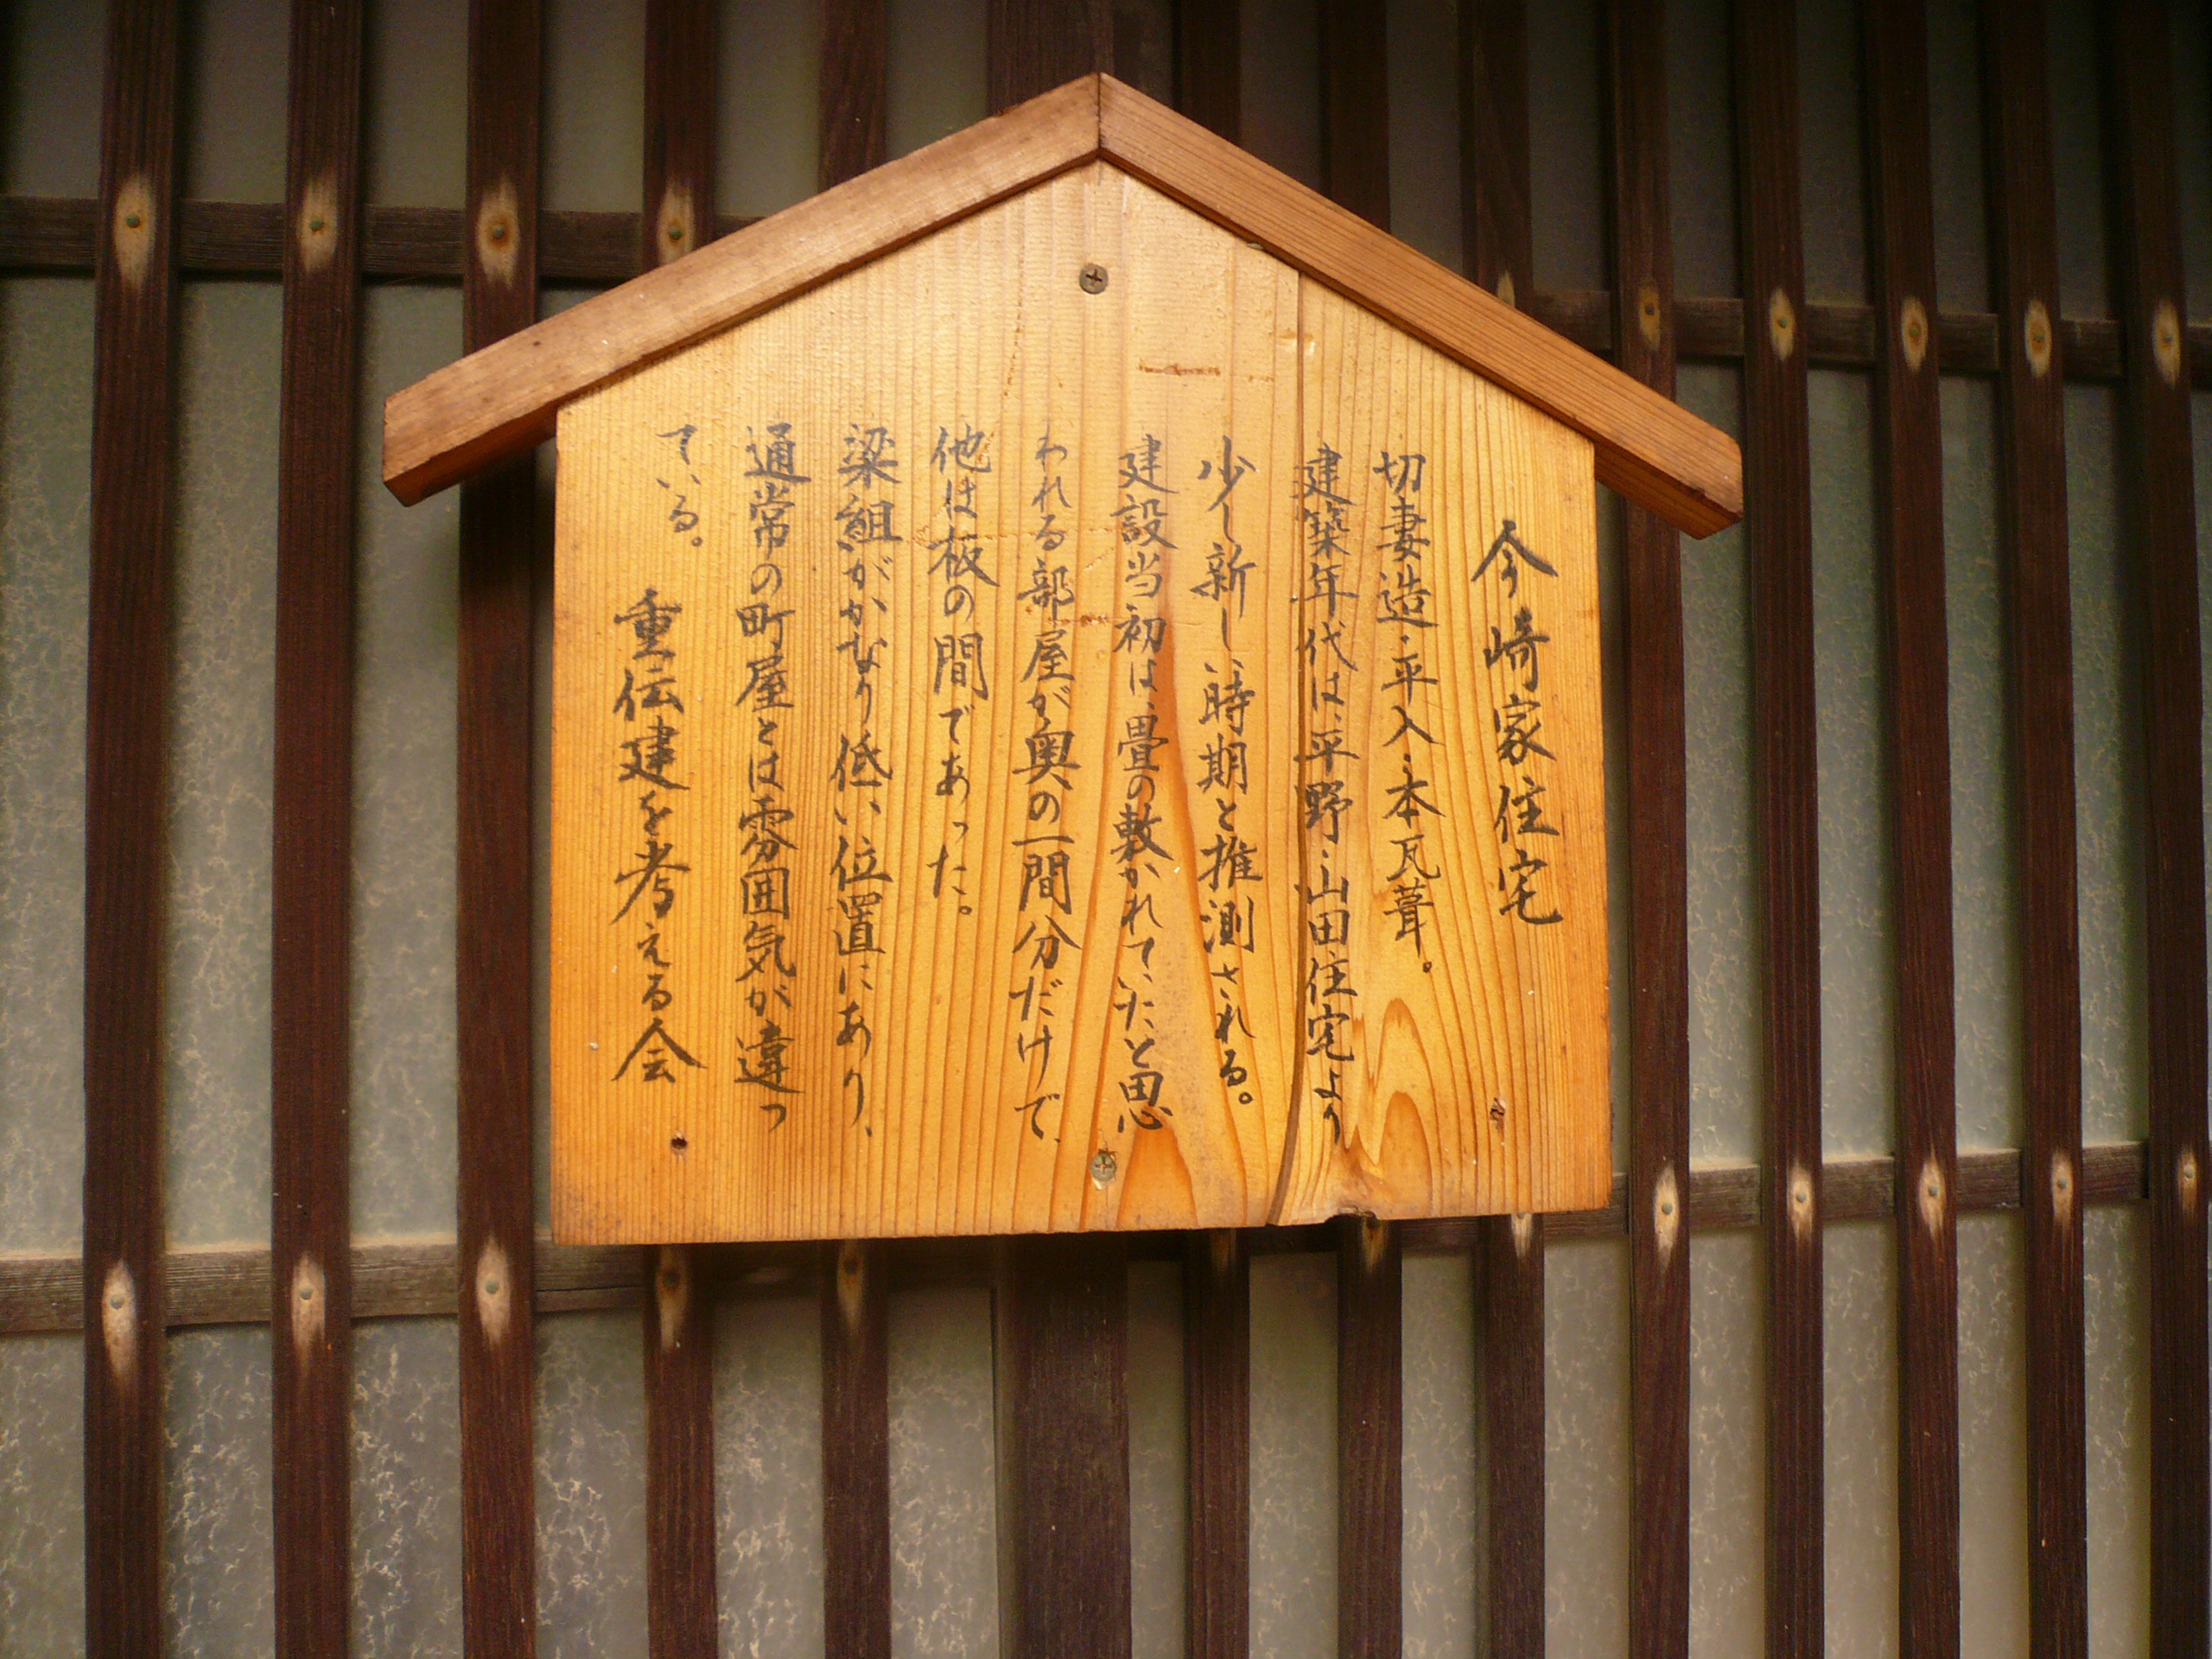 今崎家住宅
切妻造・平入・本瓦葺。
建築年代は、平野・山田住宅より
少し新しい時期と推測される。
建設当初は、畳の敷かれていたと思
われる部屋が奥の一間分だけで、
他は板の間であった。
梁組がかなり低い位置にあり、
通常の町屋とは雰囲気が違っ
ている。
重伝建を考える会